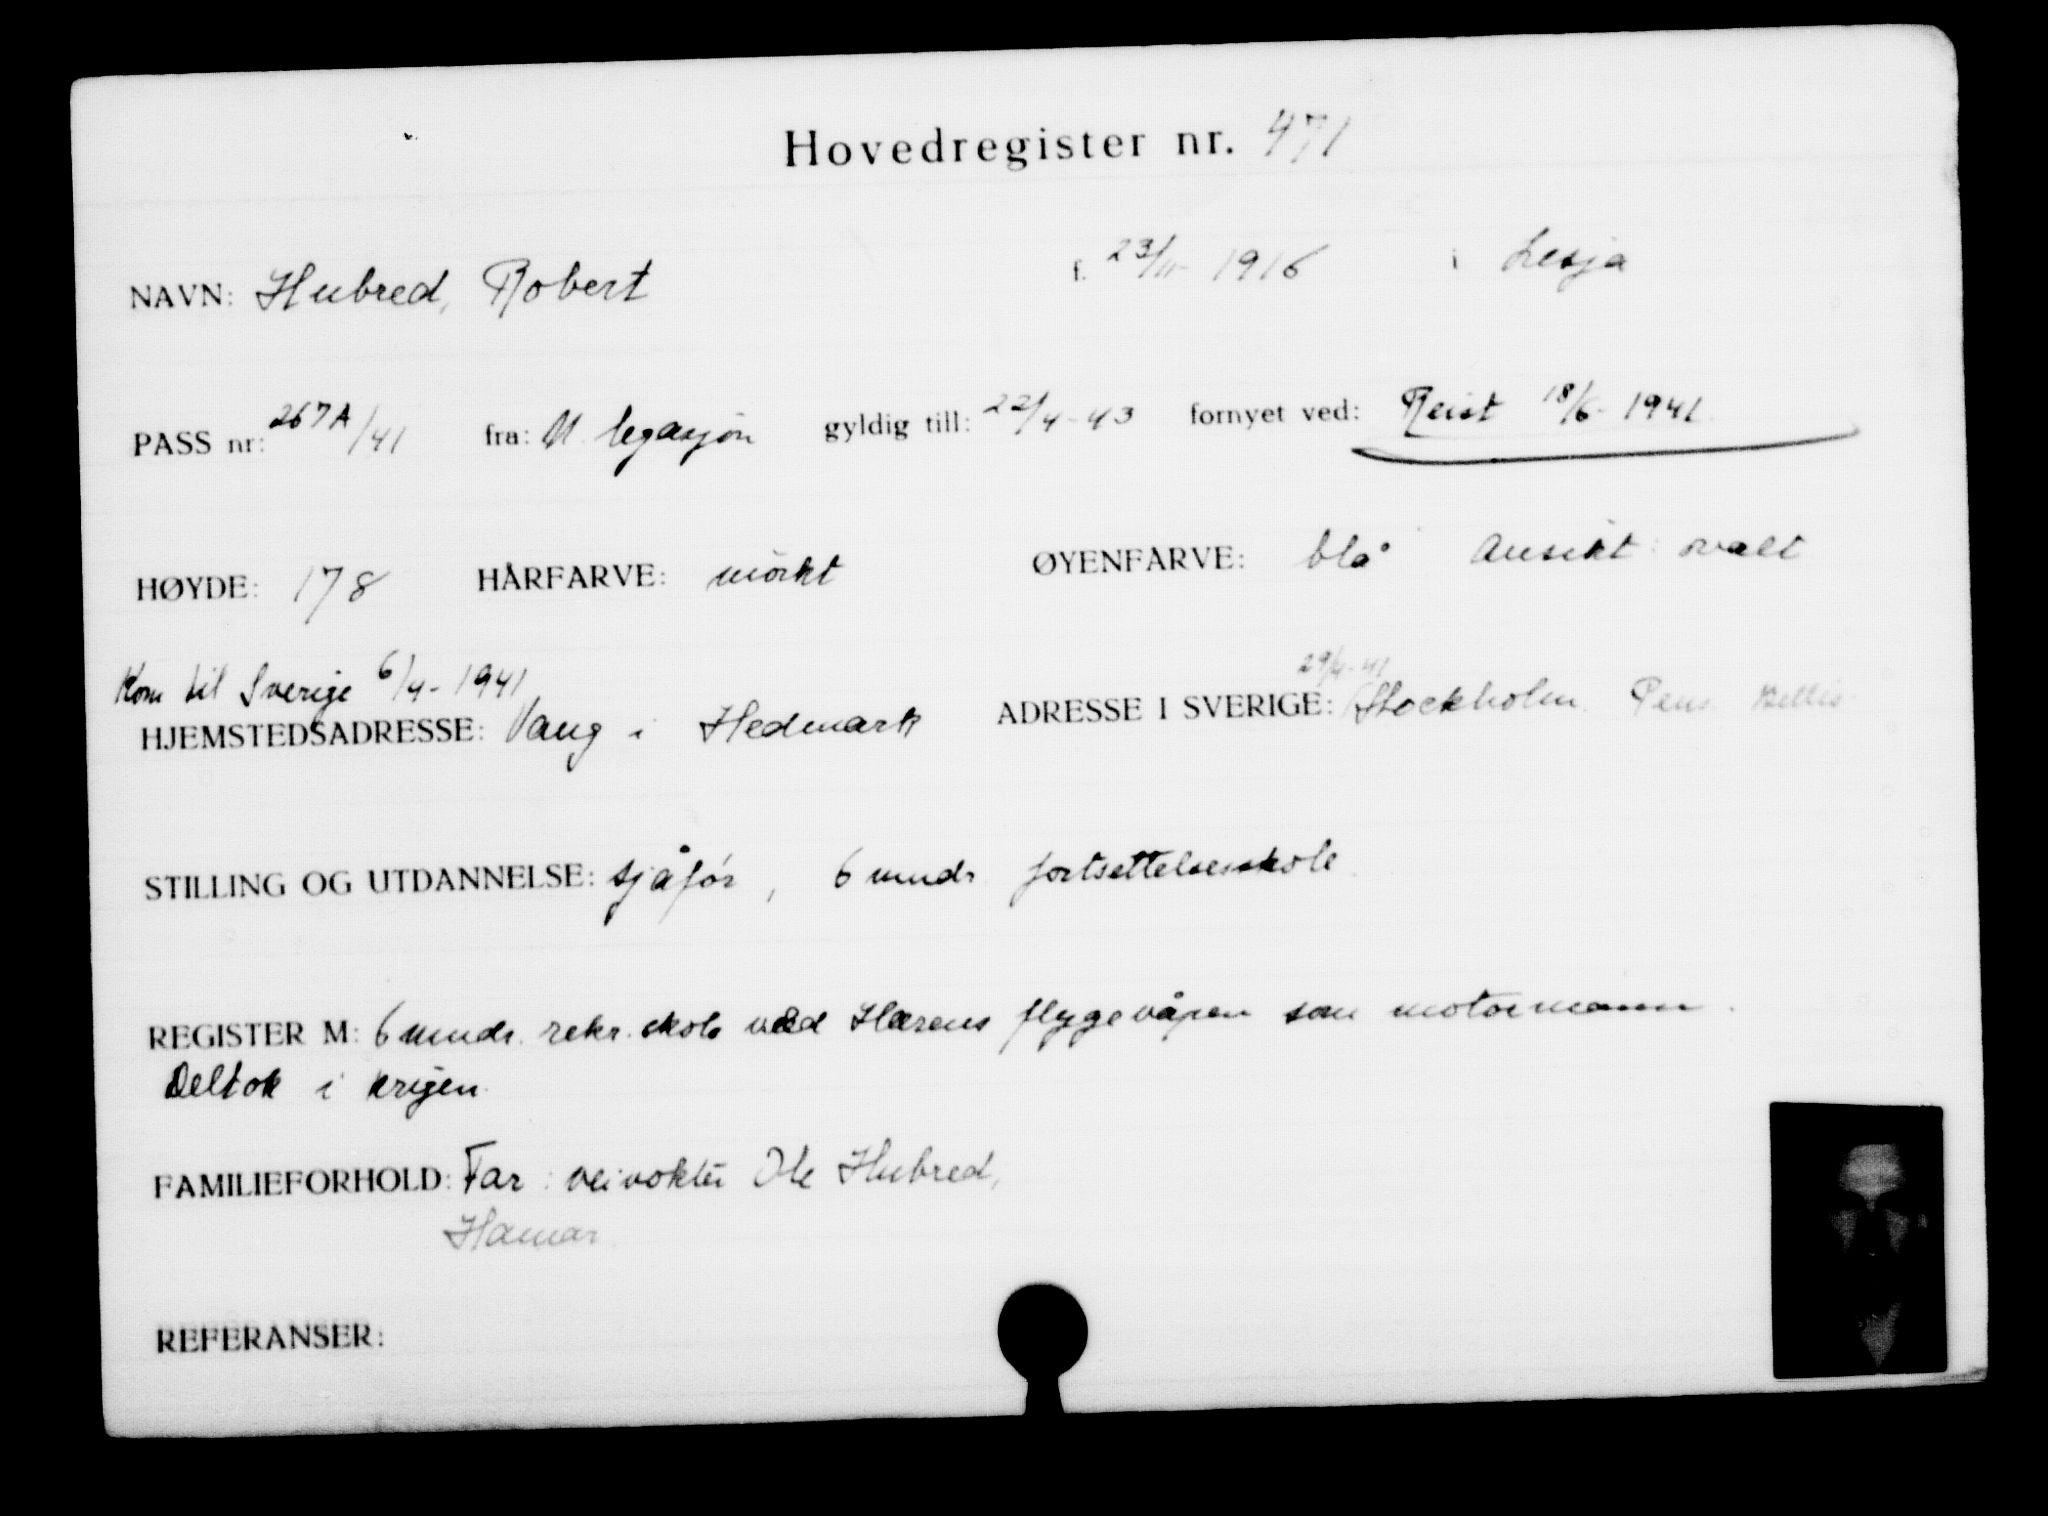 Hovedregister nr. 471
NAVN: Hubred, Robert f. 23/11-1916 i Lesja
PASS nr: 267A/41 fra: N. legasjon gyldig till: 22/4-43 fornyet ved: Reist 18/6-1941.
HØYDE: 178 HÅRFARVE: mörkt ØYENFARVE: blå Ansikt: ovalt
Kom til Sverige 6/4-1941 29/4-41
HJEMSTEDSADRESSE: Vang i Hedmark ADRESSE I SVERIGE: Stockholm. Pens.
STILLING OG UTDANNELSE: sjåför, 6 mndr. fortsettelsesskole.
REGISTER M: 6 mndr. rekr. skole ved Hærens flygevåpen som motormann.
Deltok i krigen.
FAMILIEFORHOLD: Far: veivokter Ole Hubred,
Hamar.
REFERANSER: